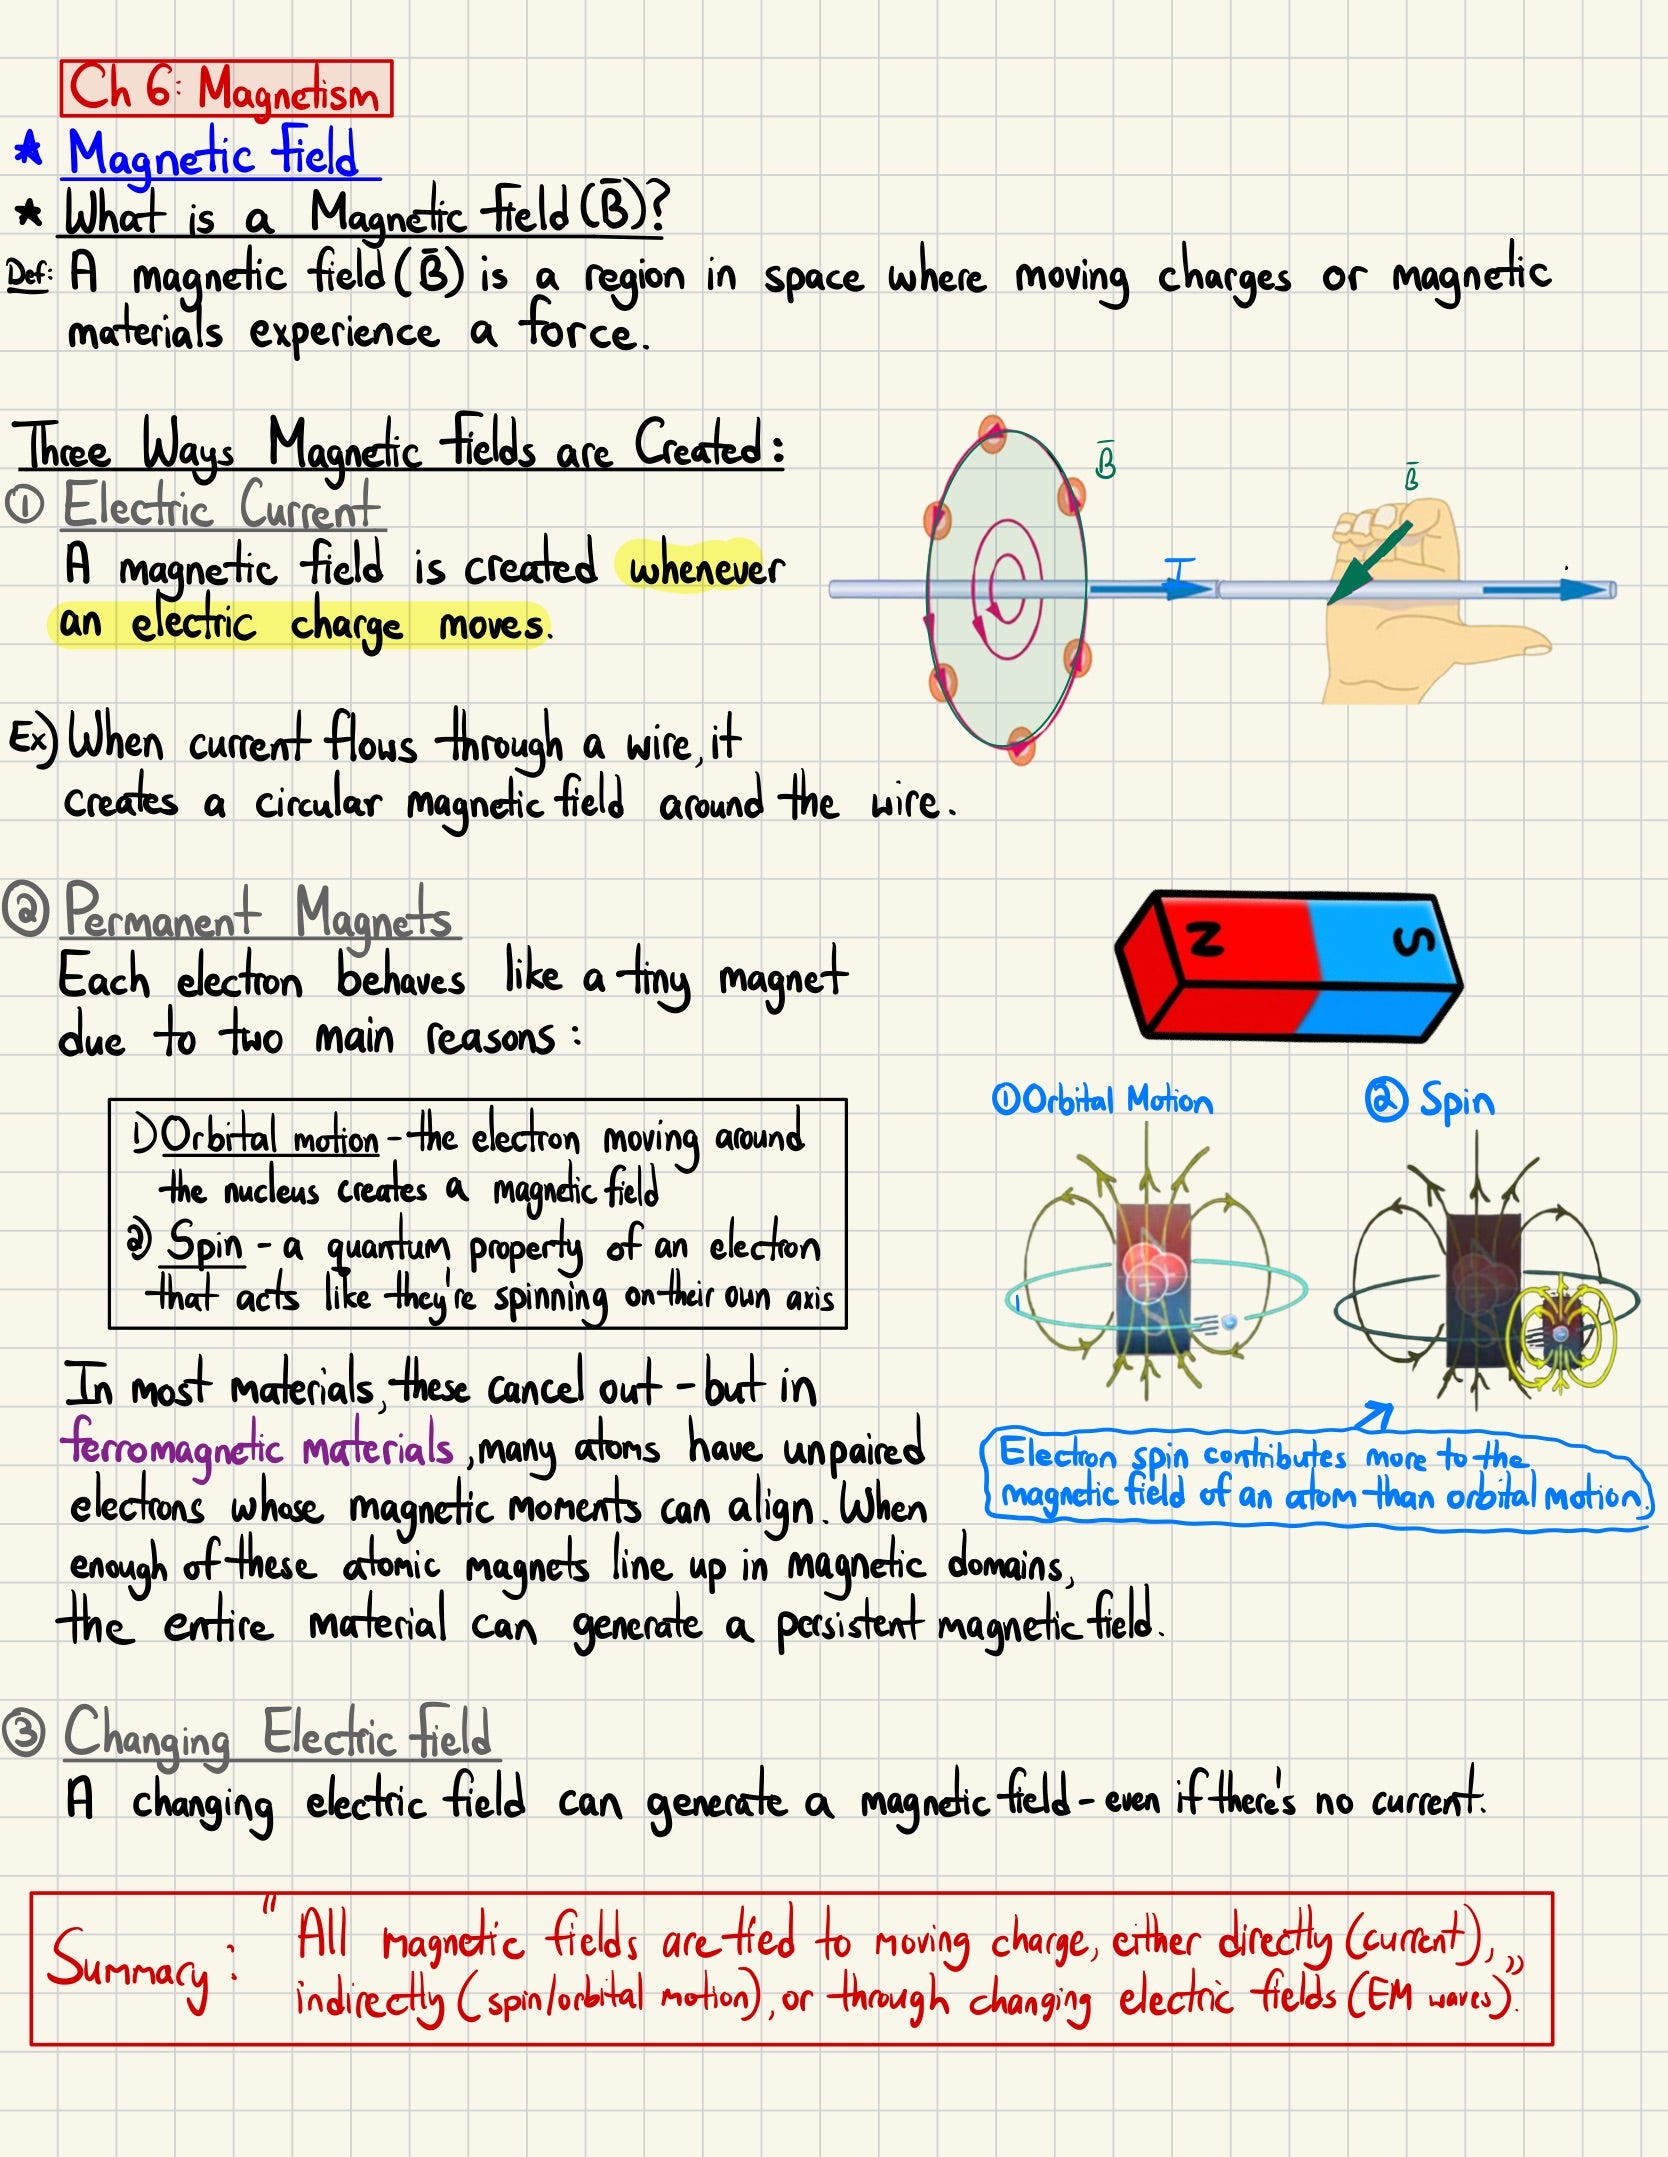 Ch 6: Magnetism
★ Magnetic Field
★ What is a Magnetic Field (B̄)?
Def: A magnetic field (B̄) is a region in space where moving charges or magnetic
materials experience a force.
Three Ways Magnetic Fields are Created:
① Electric Current
A magnetic field is created whenever
an electric charge moves.
B̄
I
B̄
Ex) When current flows through a wire, it
creates a circular magnetic field around the wire.
② Permanent Magnets
Each electron behaves like a tiny magnet
due to two main reasons:
N S
1) Orbital motion - the electron moving around
the nucleus creates a magnetic field
2) Spin - a quantum property of an electron
that acts like they're spinning on their own axis
① Orbital Motion
② Spin
N
+
S
-
-
In most materials, these cancel out - but in
ferromagnetic materials, many atoms have unpaired
electrons whose magnetic moments can align. When
enough of these atomic magnets line up in magnetic domains,
the entire material can generate a persistent magnetic field.
Electron spin contributes more to the
magnetic field of an atom than orbital motion.
③ Changing Electric Field
A changing electric field can generate a magnetic field - even if there's no current.
Summary: " All magnetic fields are tied to moving charge, either directly (current),
indirectly (spin/orbital motion), or through changing electric fields (EM waves)."